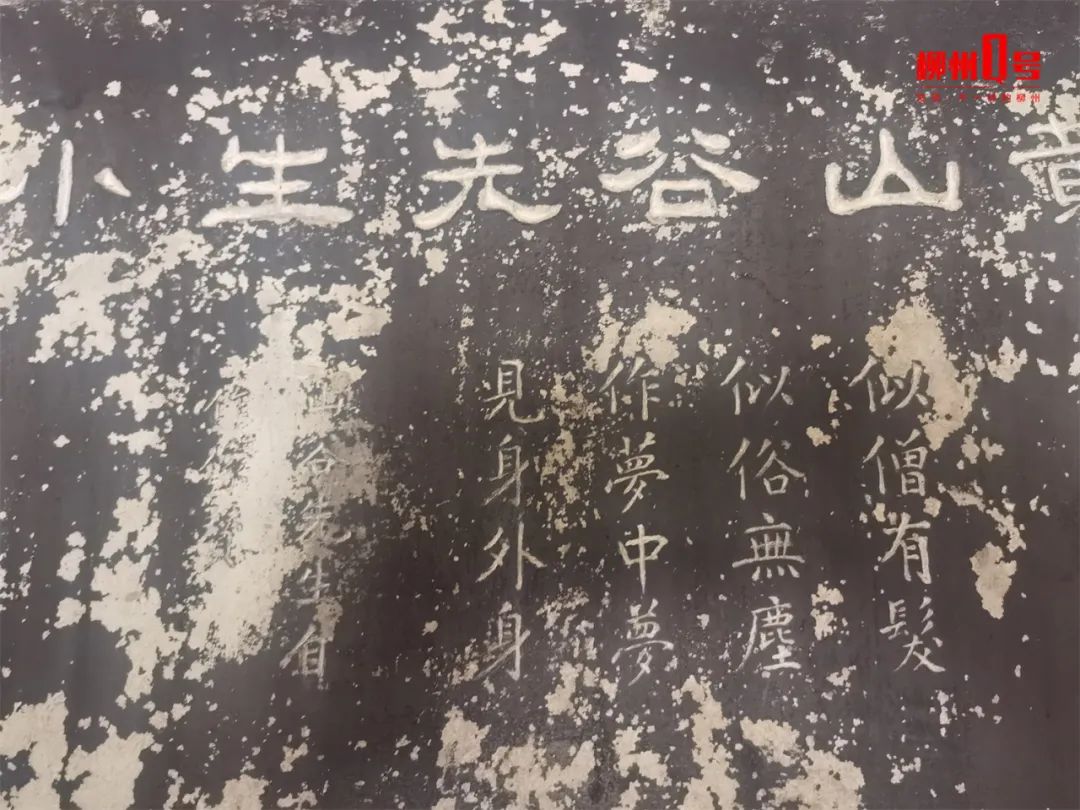 黄山谷先生小
似僧有髮
似俗無塵
作夢中夢
見身外身
谷先生自
柳州1号